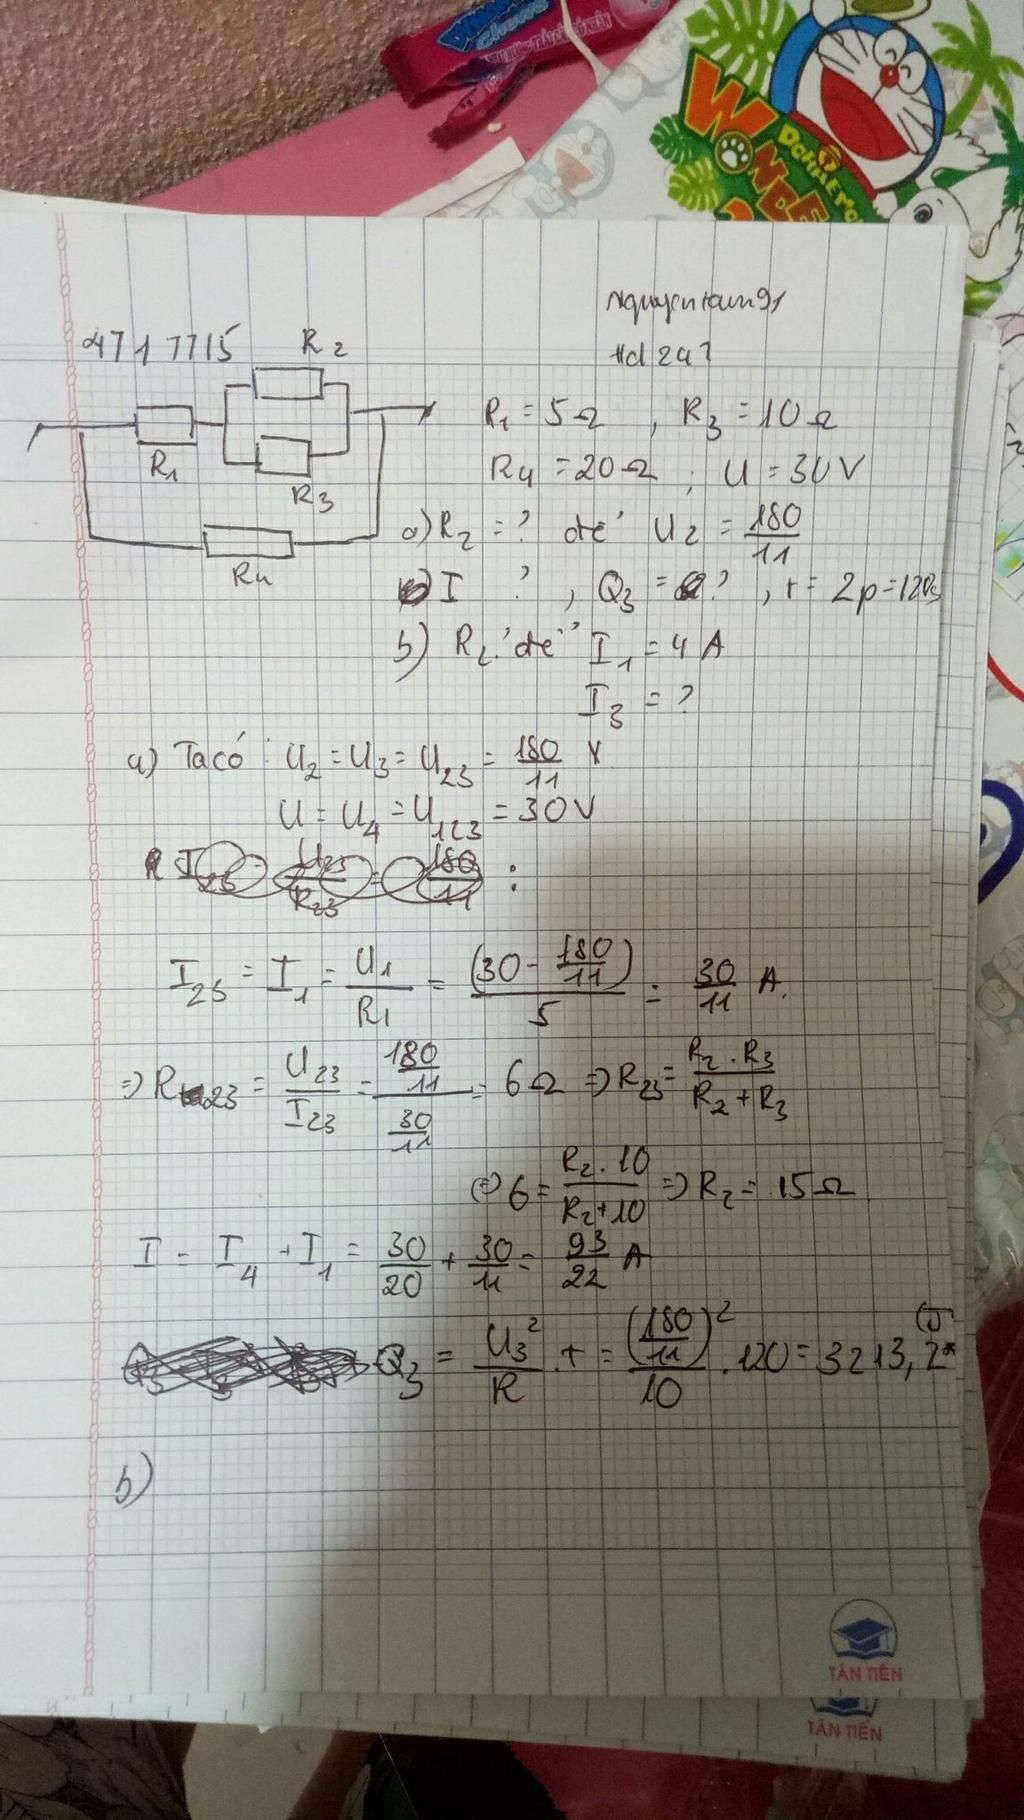 WONDE
DORAEMO
4717715
R2
R1
R3
R4
nguyentam91
hd247
R1 = 5Ω , R3 = 10Ω
R4 = 20Ω ; U = 30V
a) R2 = ? để U2 = 180/11
I ? , Q3 = ? , t = 2p = 120s
b) R2 ? để I1 = 4 A
I3 = ?
a) Ta có : U2 = U3 = U23 = 180/11 V
U = U4 = U123 = 30V
I23 = I1 = U1/R1 = (30 - 180/11)/5 = 30/11 A.
=> R23 = U23/I23 = (180/11)/(30/11) = 6Ω => R23 = R2 . R3/(R2 + R3)
<=> 6 = R2 . 10/(R2 + 10) => R2 = 15Ω
I = I4 + I1 = 30/20 + 30/11 = 93/22 A
Q3 = U3²/R . t = (180/11)²/10 . 120 = 3213,2 (J)
b)
TÂN TIẾN
TÂN TIẾN